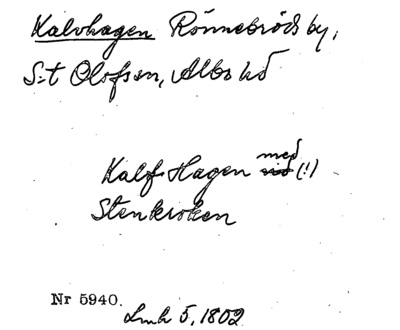 Kalvhagen Rönnebröds by,
S:t Olofs sn, Albo hd
Kalf-Hagen med vid (!)
Stenkroken
Nr 5940.
Lmh 5, 1802